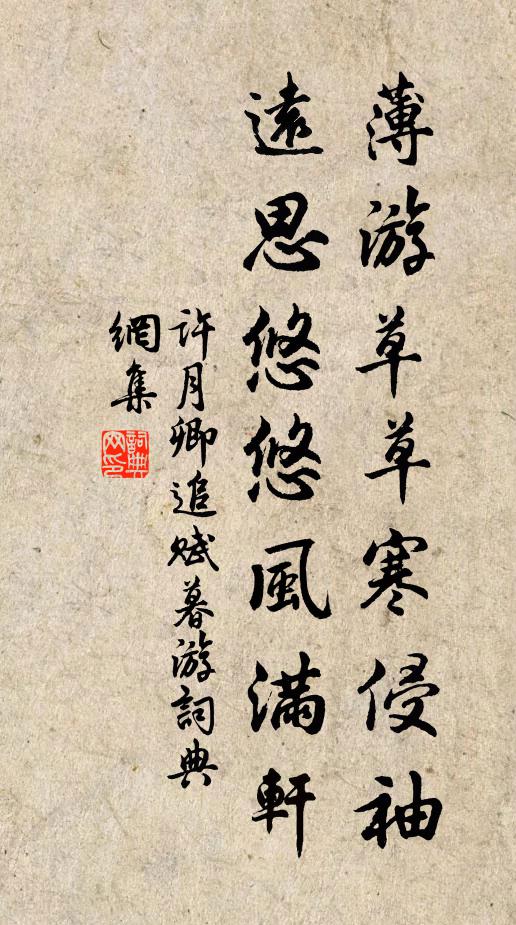 薄游草草寒侵袖
遠思悠悠風滿軒
許月卿追賦暮游詞典
網集
詞典網印